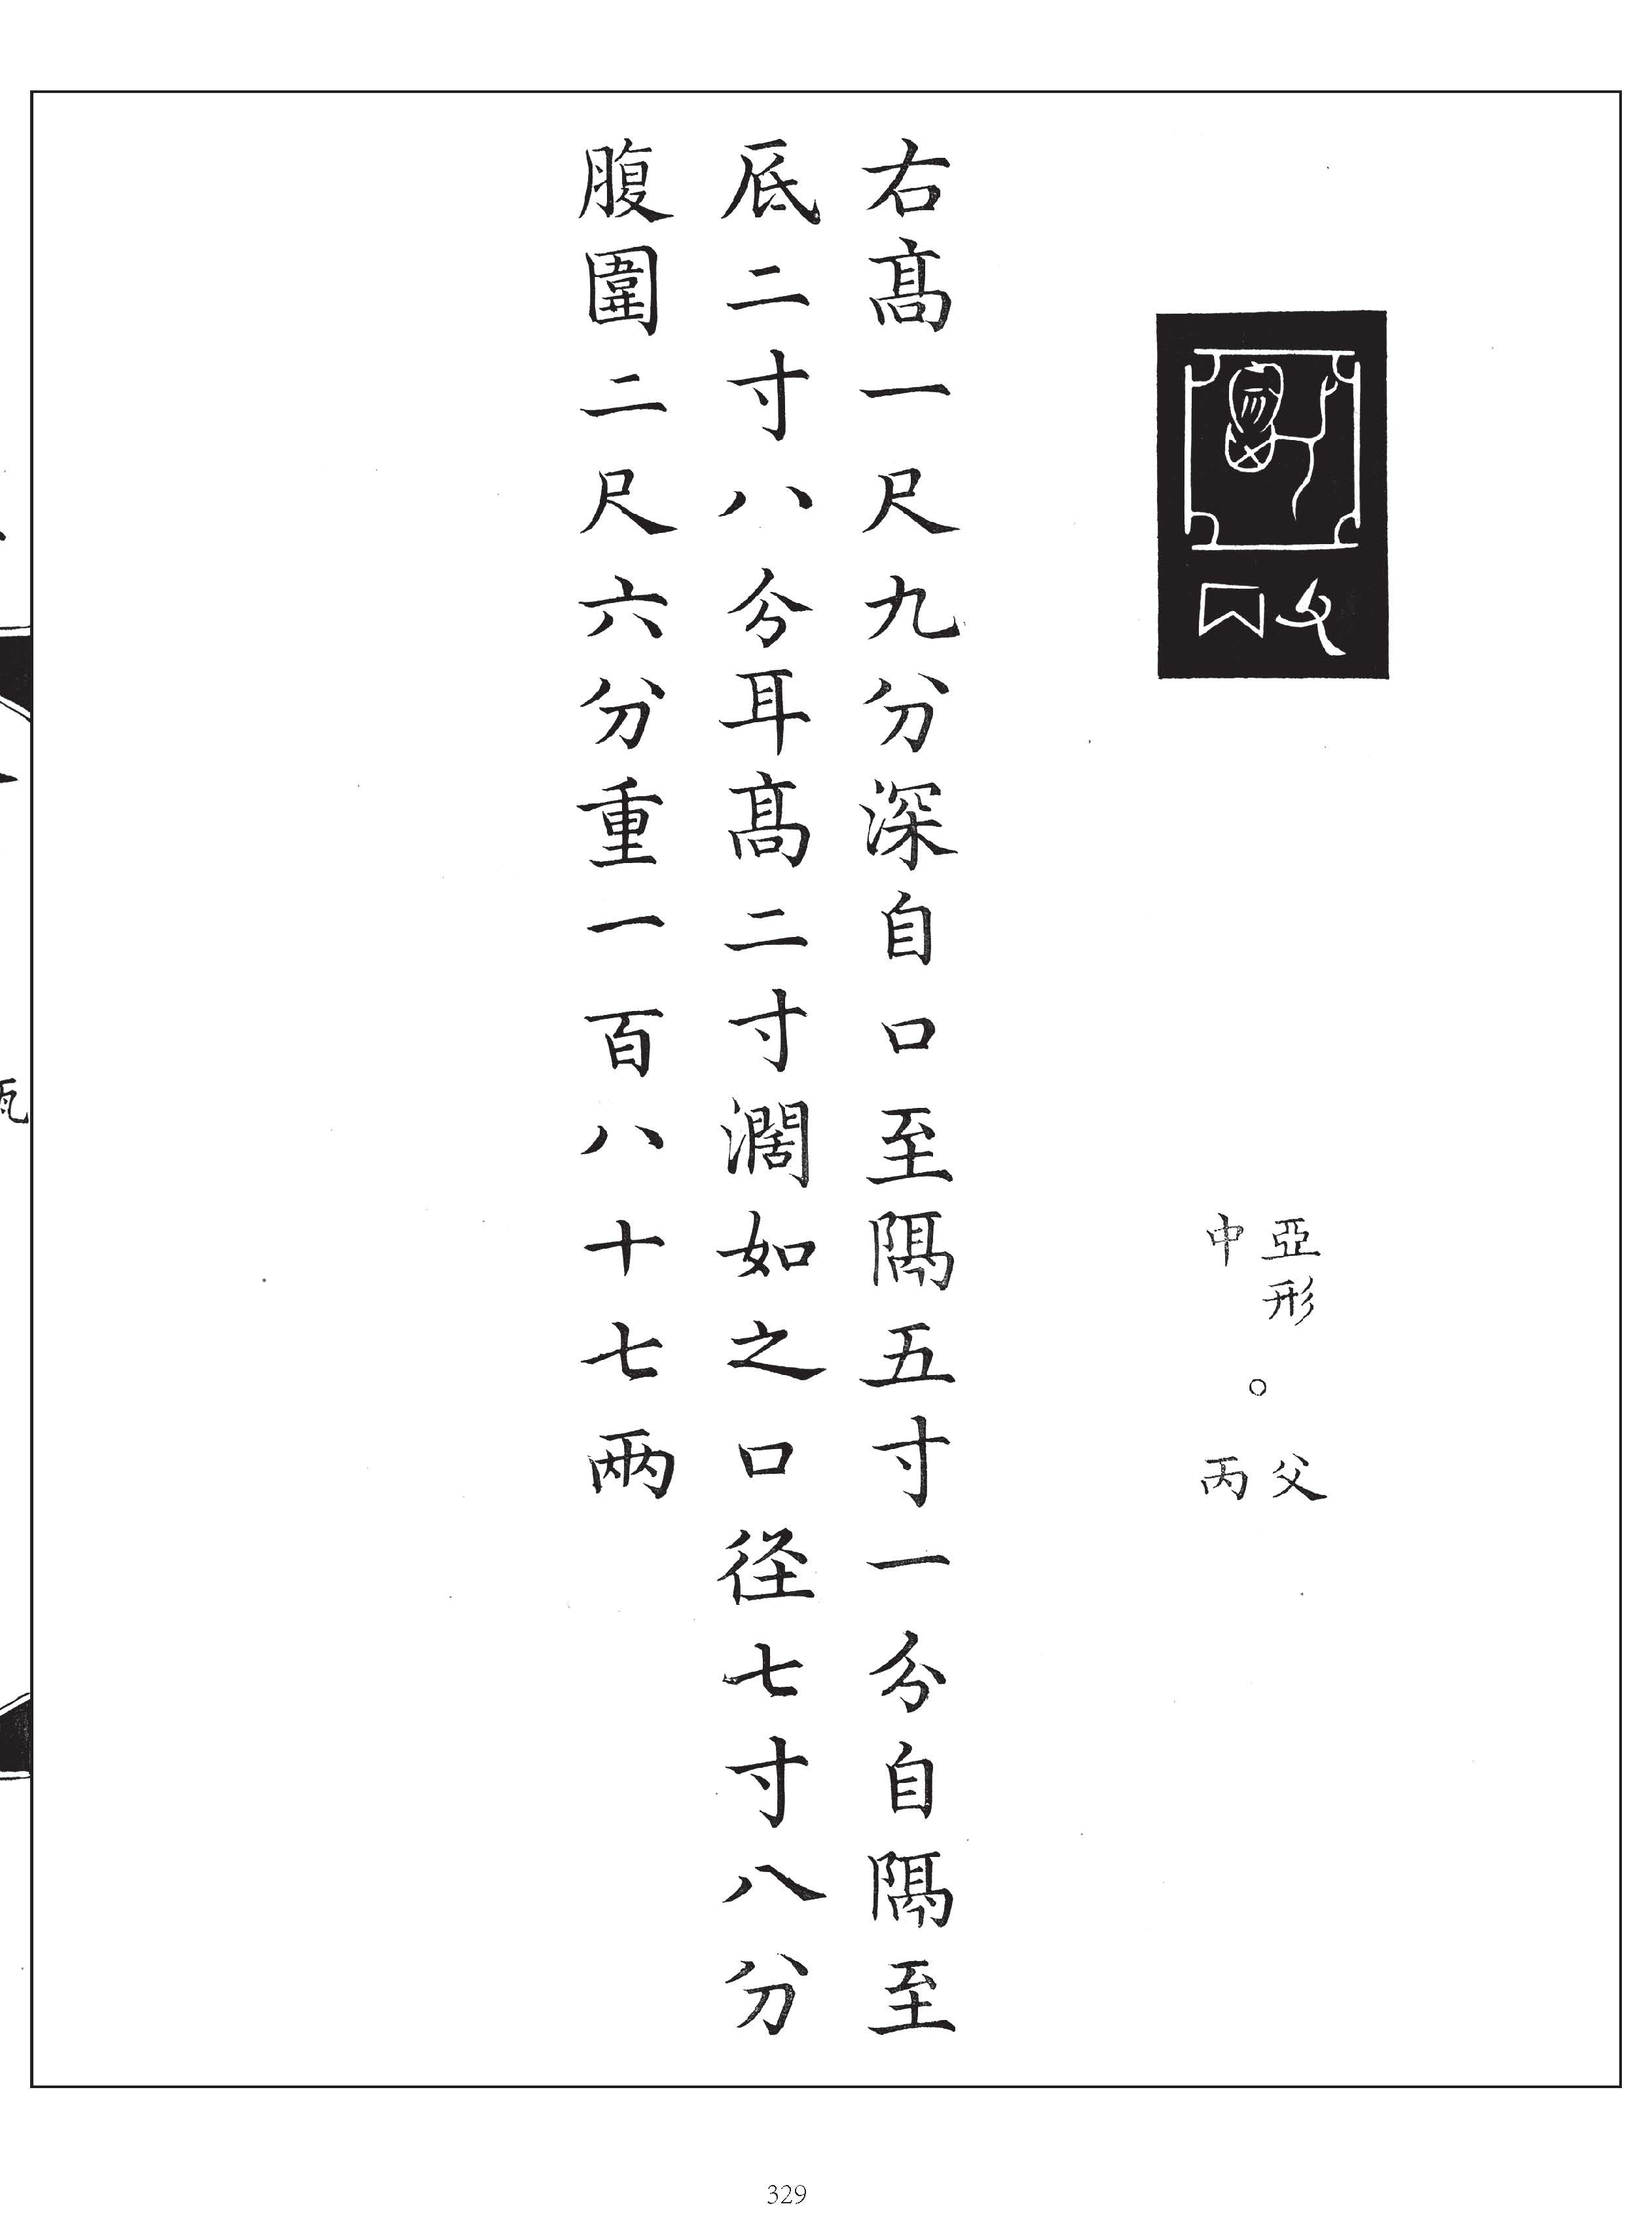 亞形
中
。
父
丙
右高一尺九分深自口至隔五寸一分自隔至
底二寸八分耳高二寸濶如之口徑七寸八分
腹圍二尺六分重一百八十七兩
329